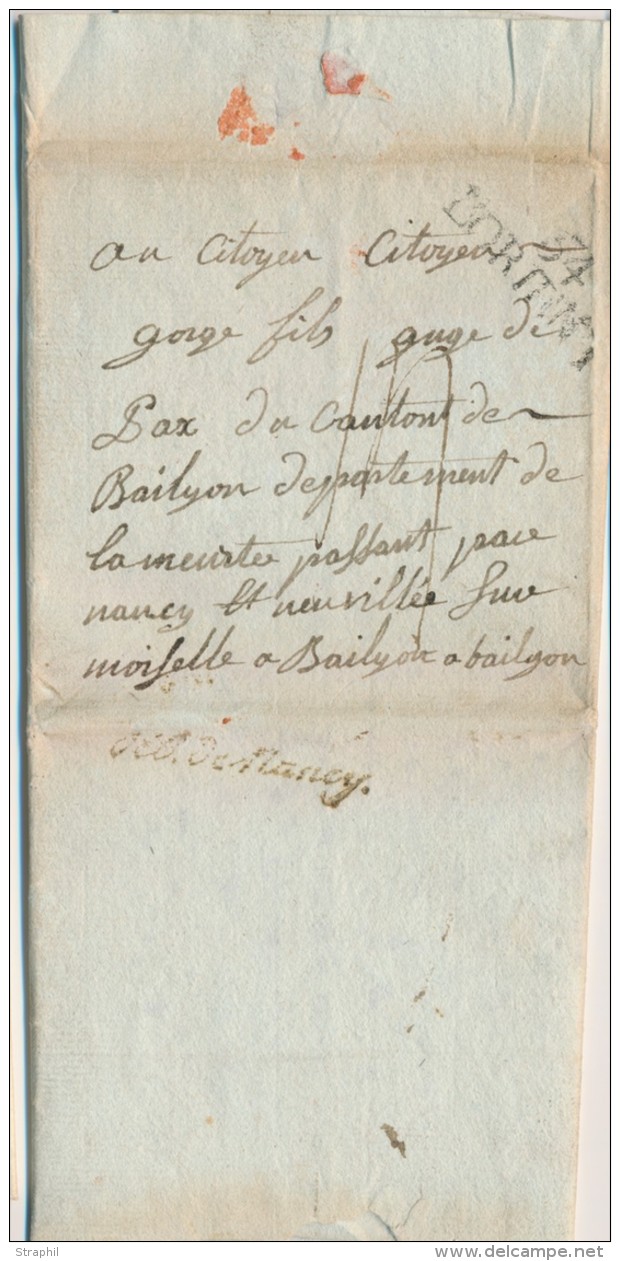 94
L'ORIENT
au Citoyen Citoyen
gorge fils guge de
Pax du Cantont de
Bailyon departement de
la meurtee passant pace
nancy Et neuvillée sur
moiselle a Bailyon a bailyon
déb. de Nancy.
Straphil
www.delcampe.net